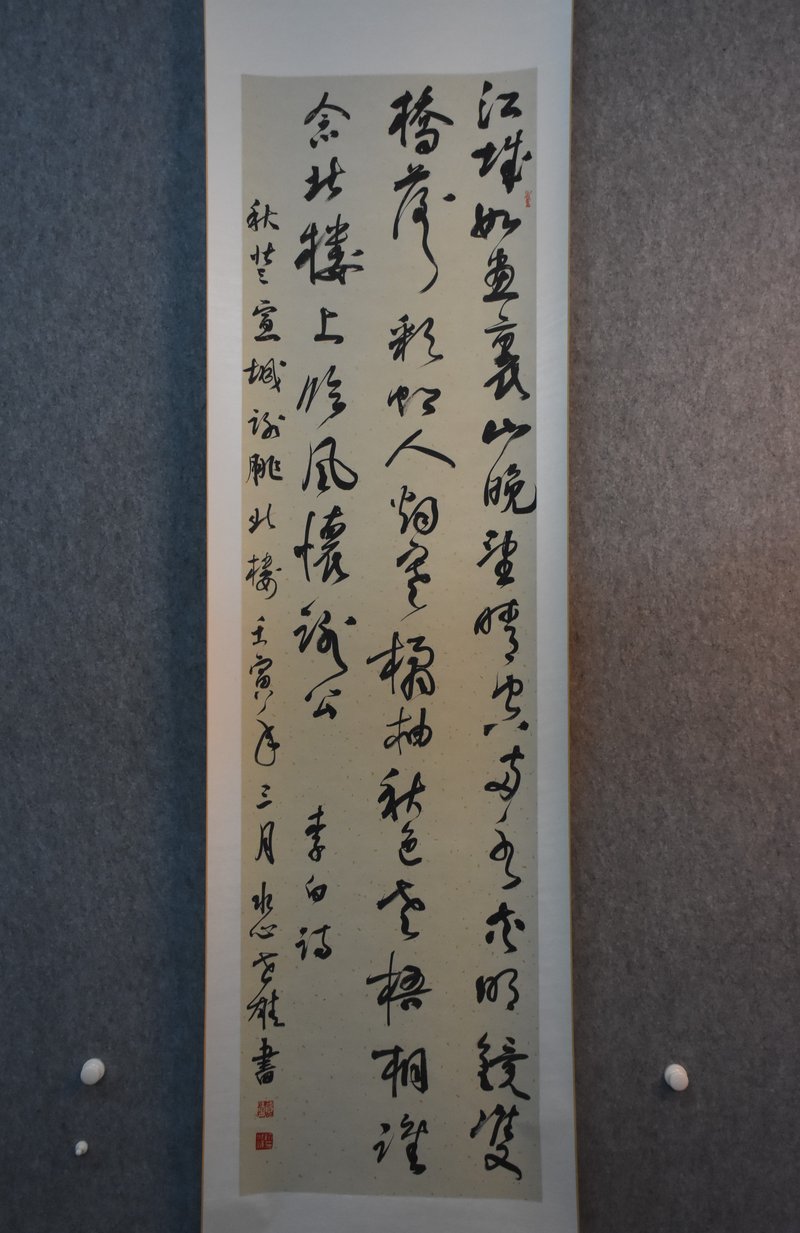 江城如畫裏山晚望晴空兩水夾明鏡雙
橋落彩虹人烟寒橘柚秋色老梧桐誰
念北樓上臨風懷謝公 李白詩
秋登宣城謝朓北樓 壬寅年三月 水心世雄書